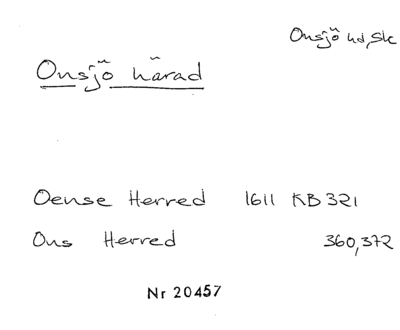 Onsjö hd, Sk
Onsjö härad
Oense Herred 1611 KB 321
Ons Herred 360, 372
Nr 20457